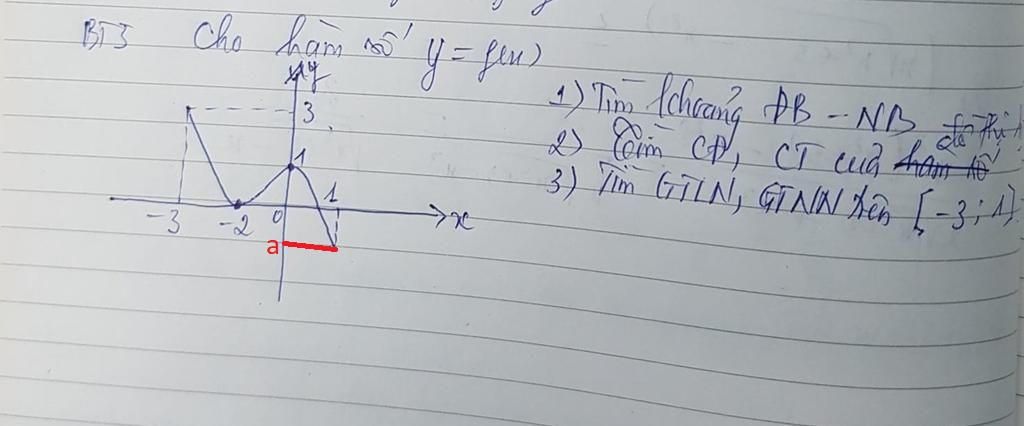 BT3 Cho hàm số y = f(x)
1) Tìm khoảng ĐB - NB
2) Điểm CĐ, CT của hàm số đồ thị
3) Tìm GTLN, GTNN trên [-3; 1]
y
3
1
-3 -2 0 1 x
a